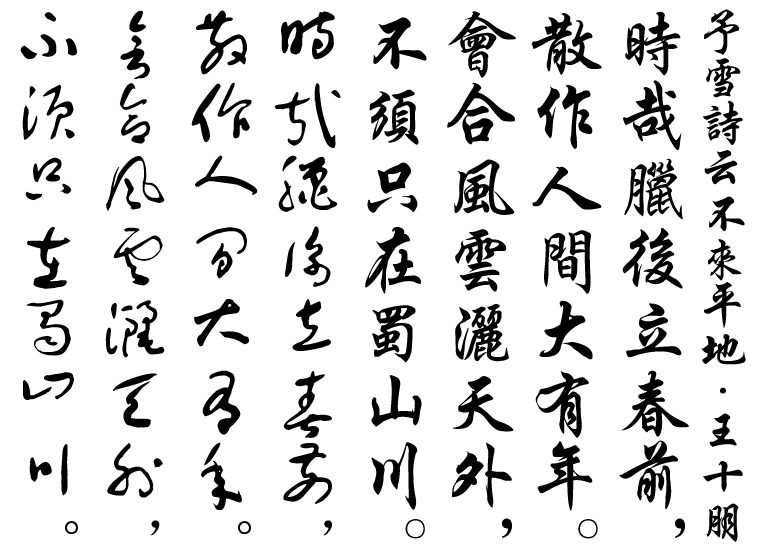 予雪詩云不來平地·王十朋
時哉臘後立春前，
散作人間大有年。
會合風雲灑天外，
不須只在蜀山川。
時哉臘後立春前，
散作人間大有年。
會合風雲灑天外，
不須只在蜀山川。